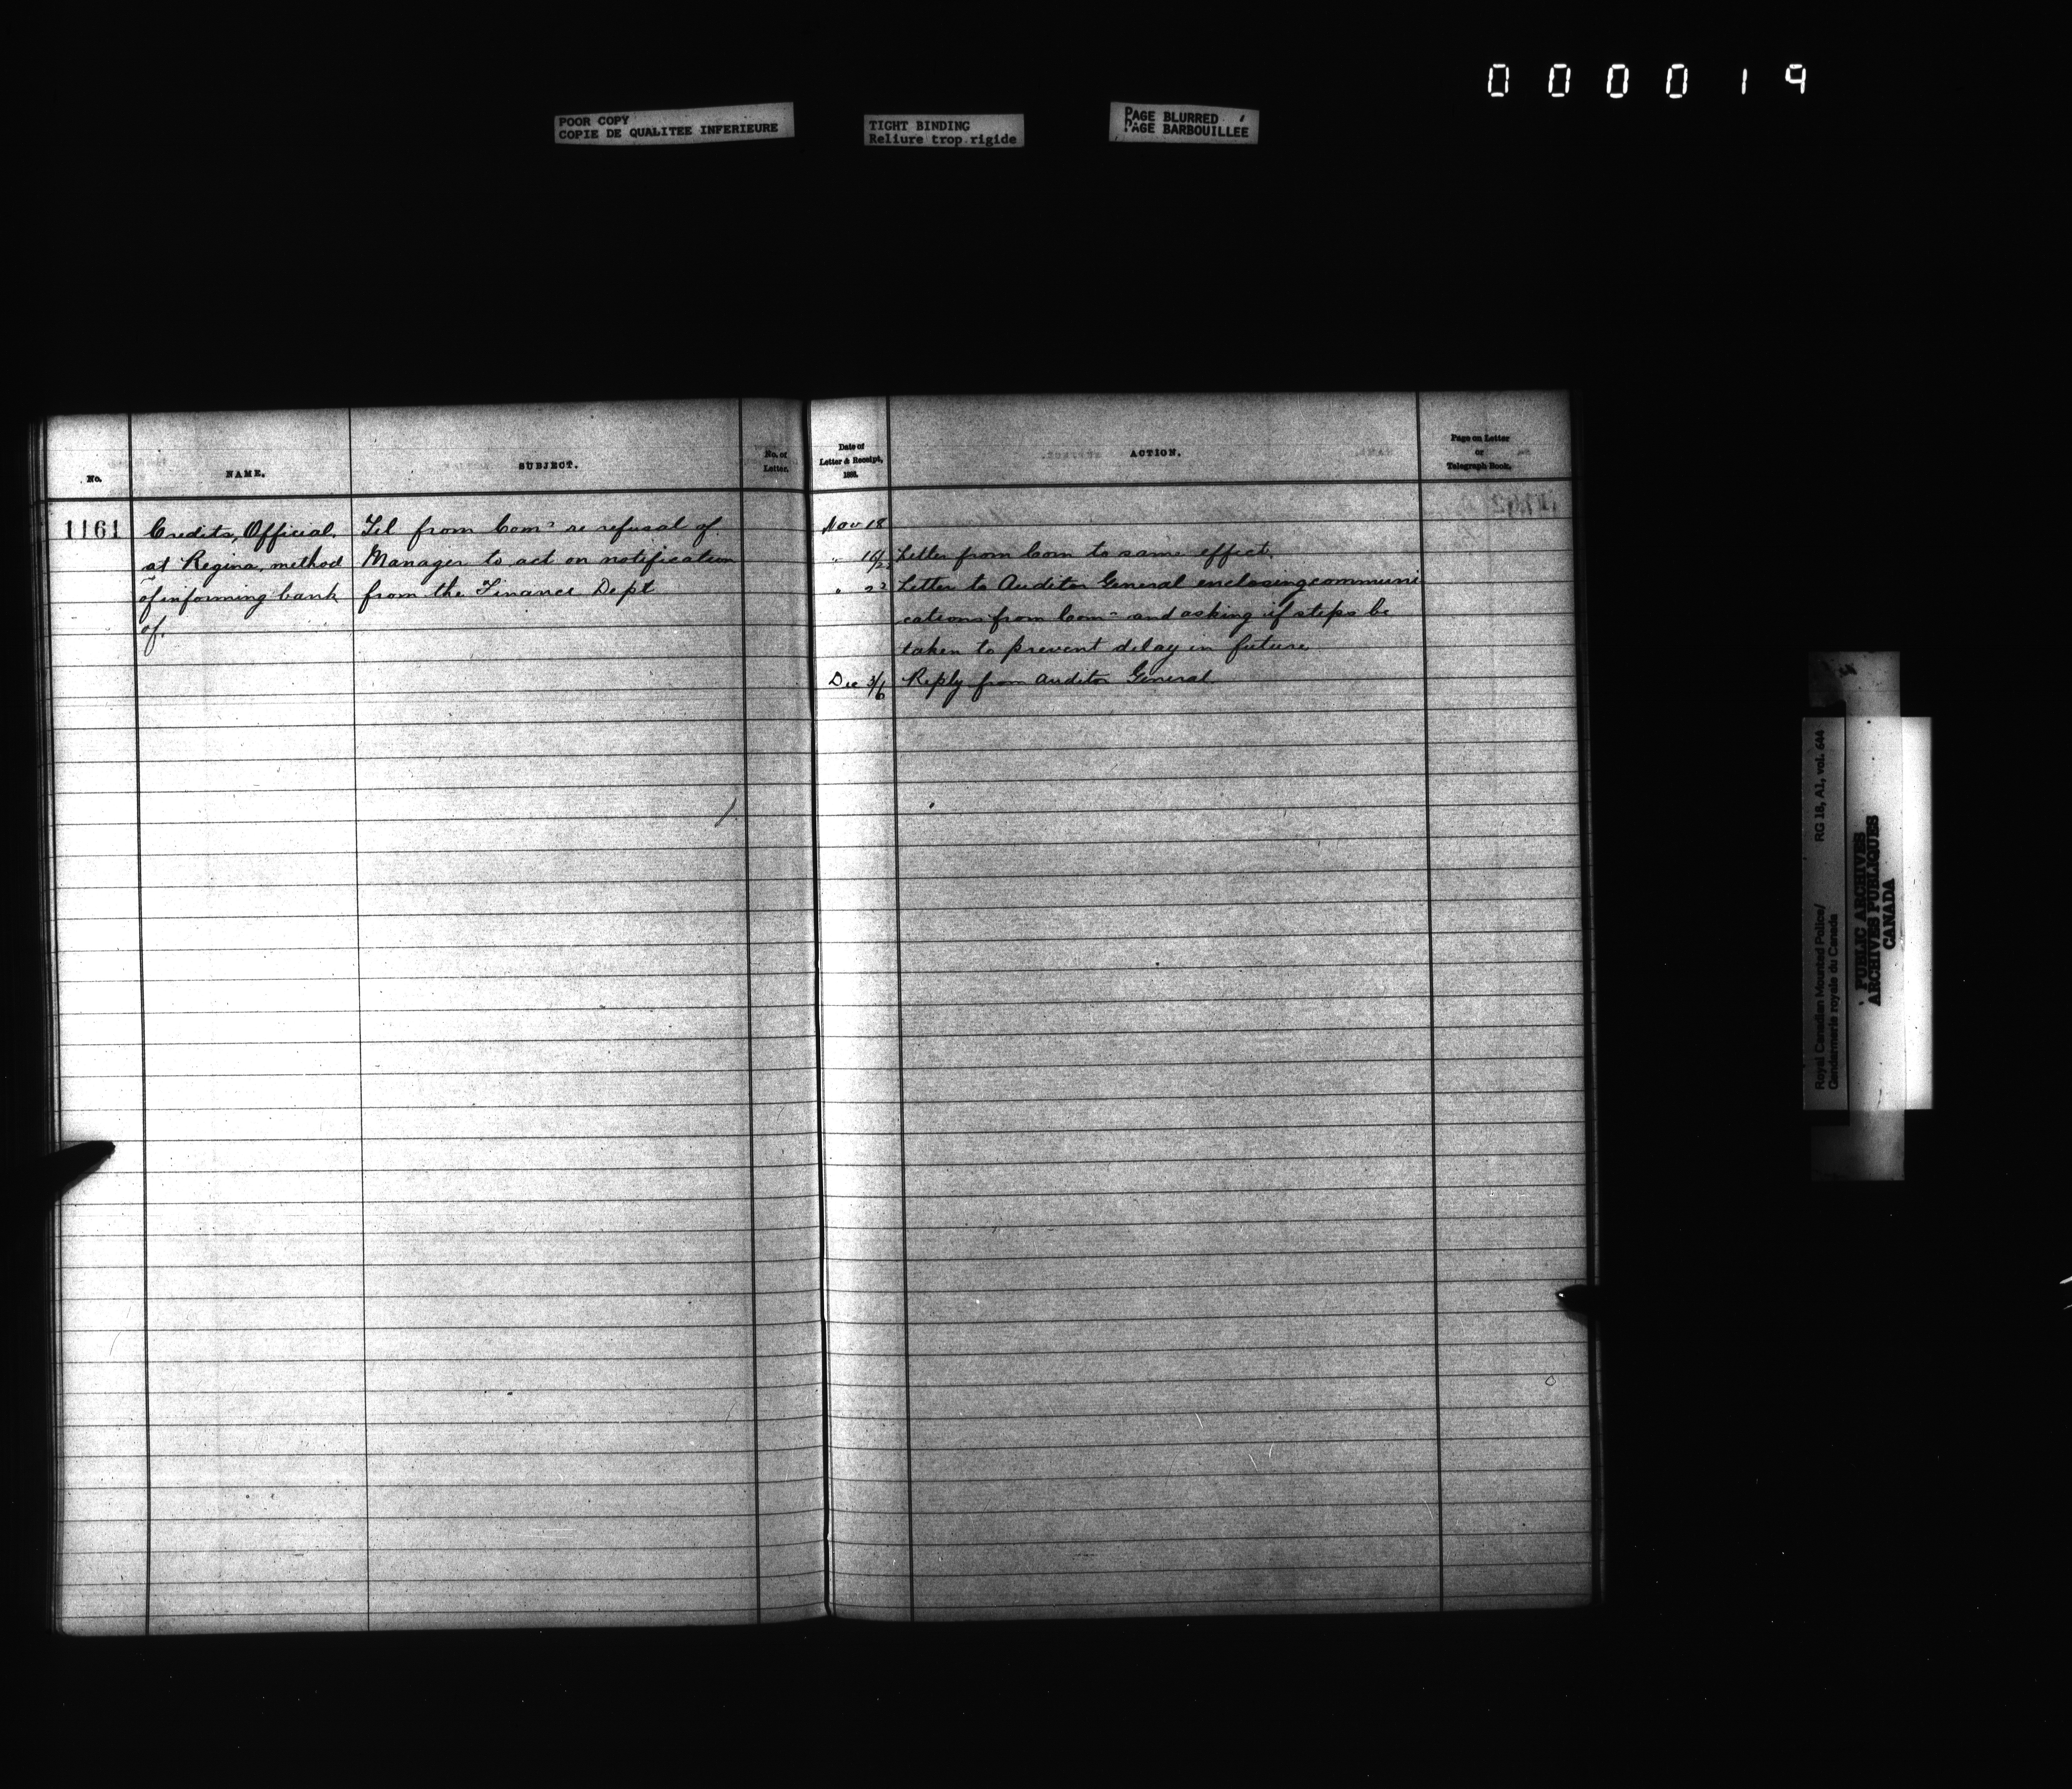 000019
POOR COPY
COPIE DE QUALITEE INFERIEURE
TIGHT BINDING
Reliure trop rigide
PAGE BLURRED
PAGE BARBOUILLEE
No.
NAME.
SUBJECT.
No. of
Letter.
1161
Credits, Official.
at Regina, method
of informing bank
of.
Tel from Comr re refusal of
Manager to act on notification
from the Finance Dept
Date of
Letter & Receipt,
ACTION.
Page on Letter
or
Telegraph Book.
Nov 18
" Letter from Com to same effect.
" 22 Letter to Auditor General enclosing communi
cations from Comr and asking if steps be
taken to prevent delay in future
Dec 3/6 Reply from Auditor General
Royal Canadian Mounted Police/ RG 18, A1, vol. 644
Gendarmerie royale du Canada
PUBLIC ARCHIVES
ARCHIVES PUBLIQUES
CANADA